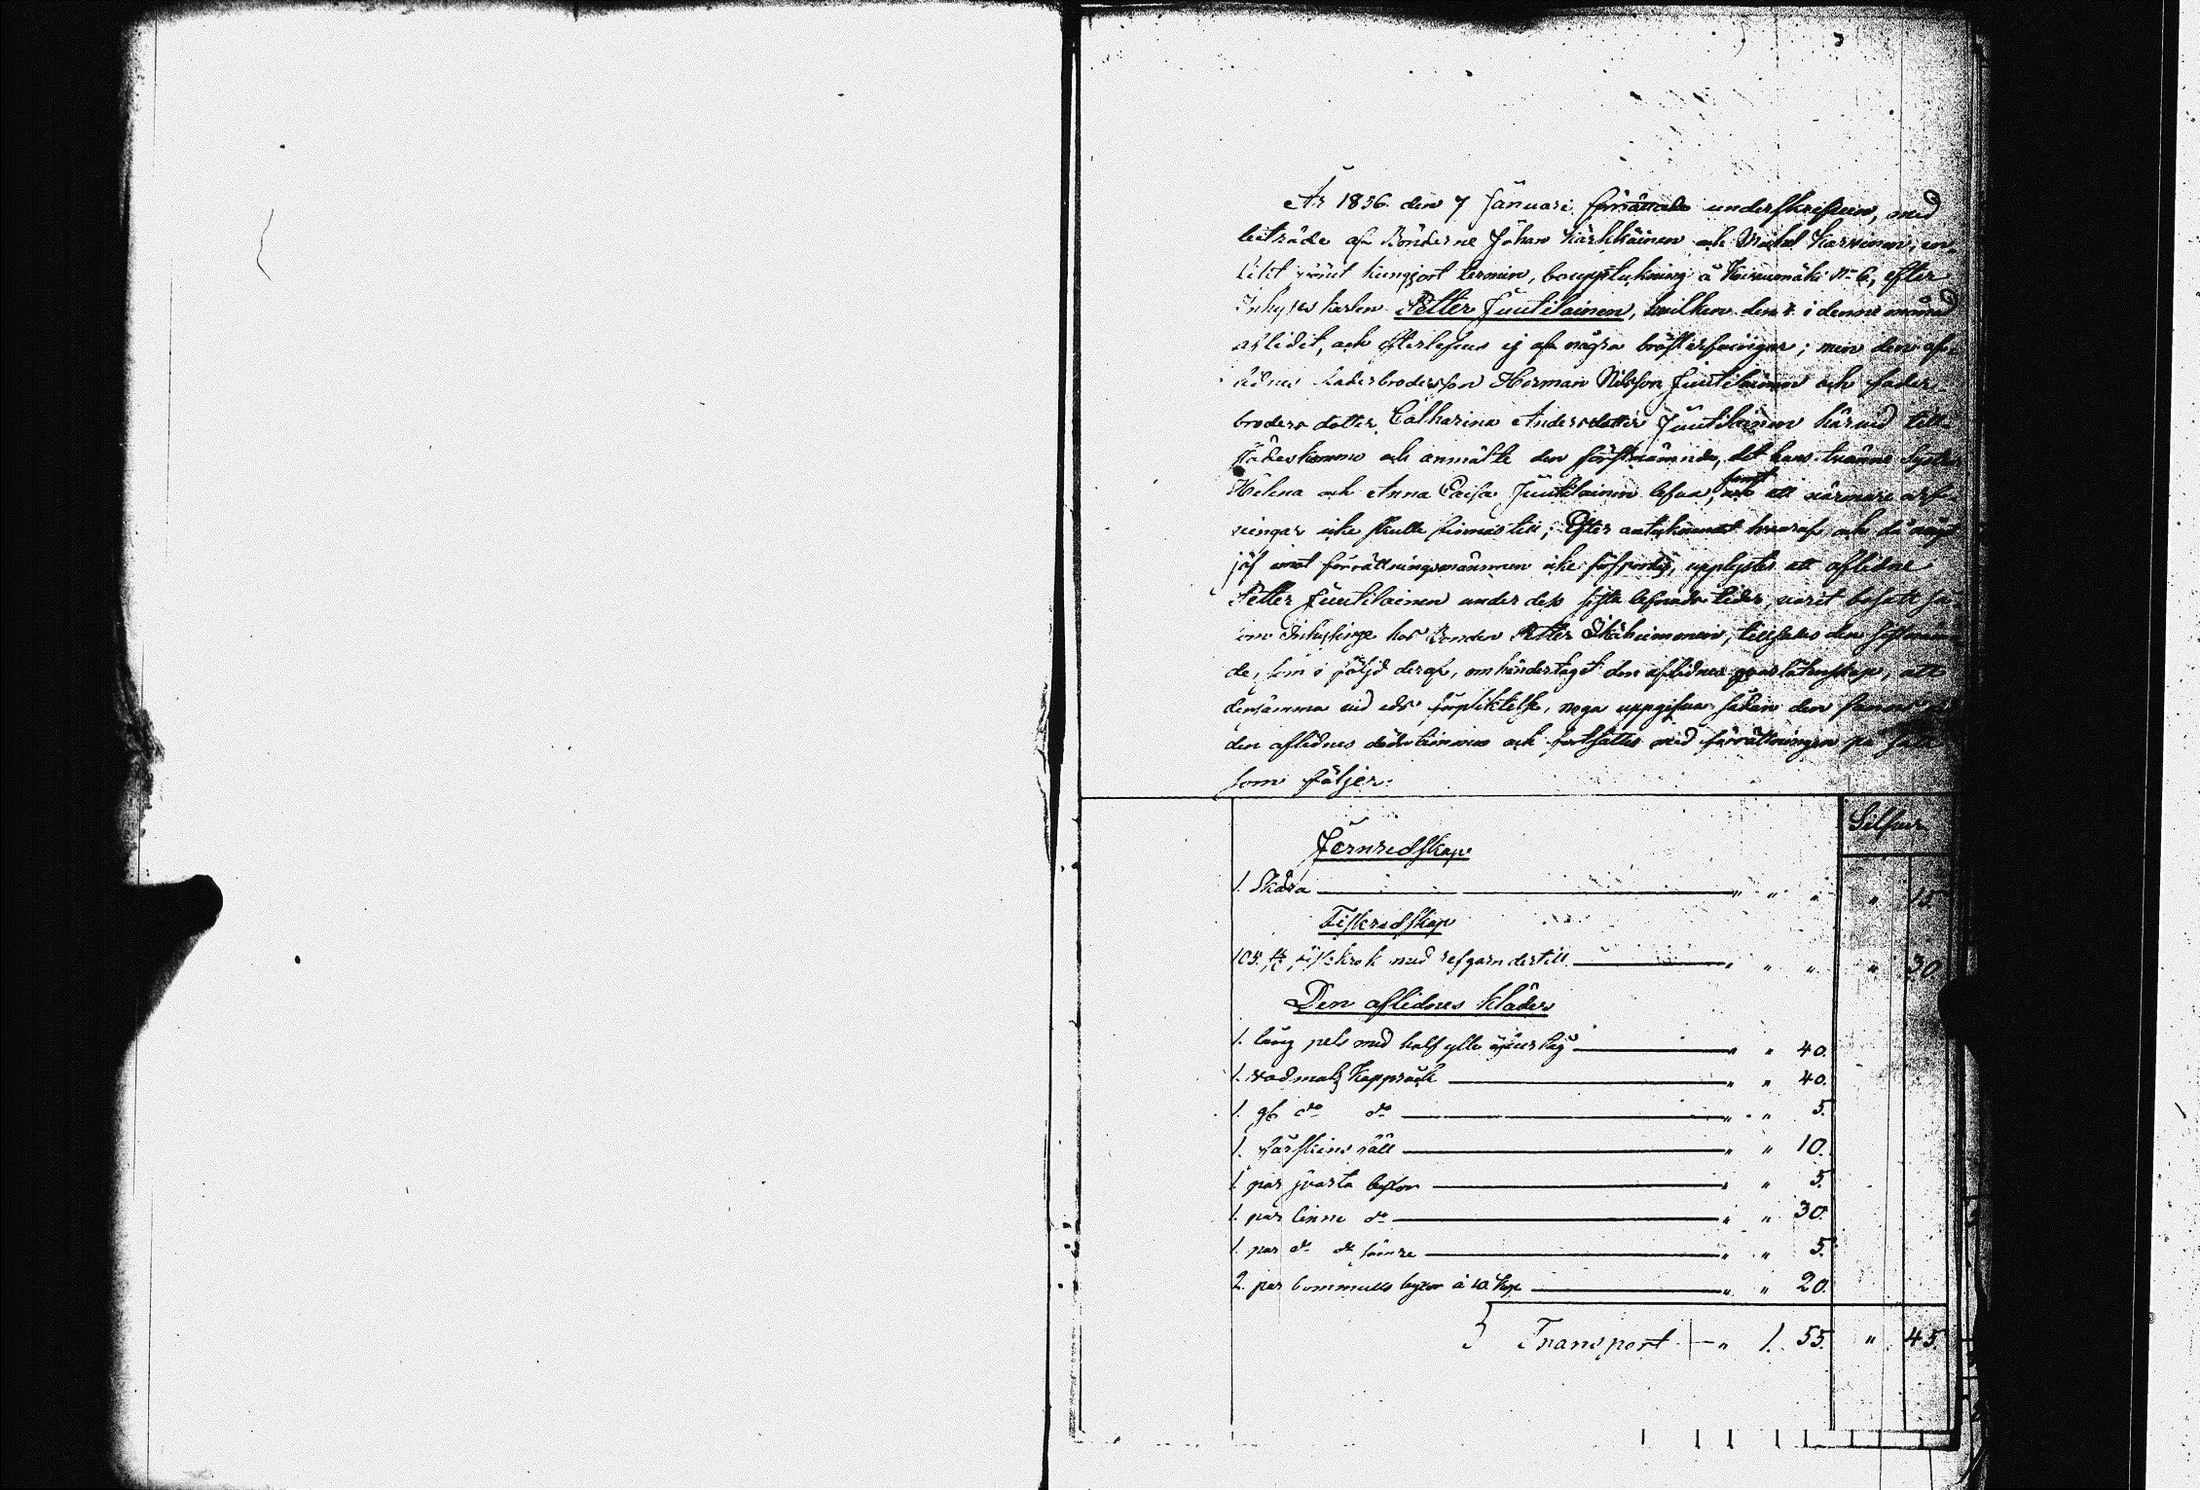 År 1856 den 7 Januari förrättade underskrefven, med
biträde af Bönderne Johan Kärkkäinen och Michel Karvinen, en
kungjort termin, bouppteckning å Koivumäki No 6, efter
Inhyses karlen Petter Juutilainen, hvilken den 4 i denne månad
aflidit, och efterlefves ej af några bröstarfvingar; men den af-
lidnes faderbrodersson Herman Nilsson Juutilainen och fader-
broders dotter Catharina Andersdotter Juutilainen härvid till-
städeskommo och anmälte den förstnämnda, det hans tvänne Syster
Helena och Anna Caisa Juutilainen lefva, samt att närmare arf-
vingar icke skulle finnas till; Efter antecknandet hvaraf och då något
jäf emot förrättningsmännen icke förspordes, upplystes att aflidne
Petter Juutilainen under dess sista lefnads tider, varit bosatt så-
som Inhysinge hos Bonden Petter Ikäheimonen, tillsades den sistnämn-
de, som i följd deraf, omhändertagit den aflidnes qvarlåtenskap, att
densamma vid eds förpliktelse, noga uppgifva sådan den fanns vid
den aflidnes dödstimma och fortsattes med förrättningen på sätt
som följer:
Silfver
Jernredskap
1. Skära " " " " 15
Fiskredskap
105. st fiskkrok med refgarn dertill " " " " 30.
Den aflidnes kläder
1. lång pels med half ylle " " 40.
1. vadmals Kapprock " " 40.
1. gl do do " " 5.
1. fårskins fäll " " 10.
1. par svarta byxor " " 5.
1. par linne do " " 30.
1. par do do sämre " " 5.
2. par bommulls byxor à 10 Kop " " 20.
Transport " 1. 55. " 45.